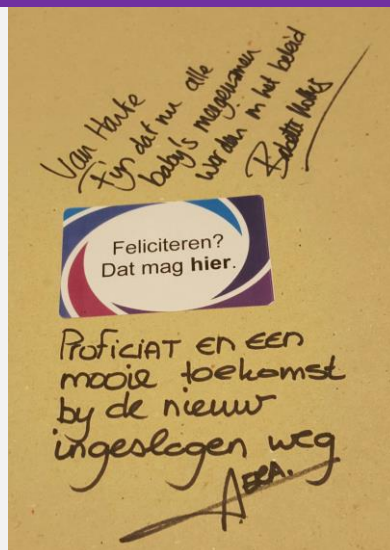 Van Harte
Fijn dat nu alle
baby's meegenomen
worden in het beleid
Feliciteren?
Dat mag hier.
Proficiat en een
mooie toekomst
by de nieuw
ingeslagen weg